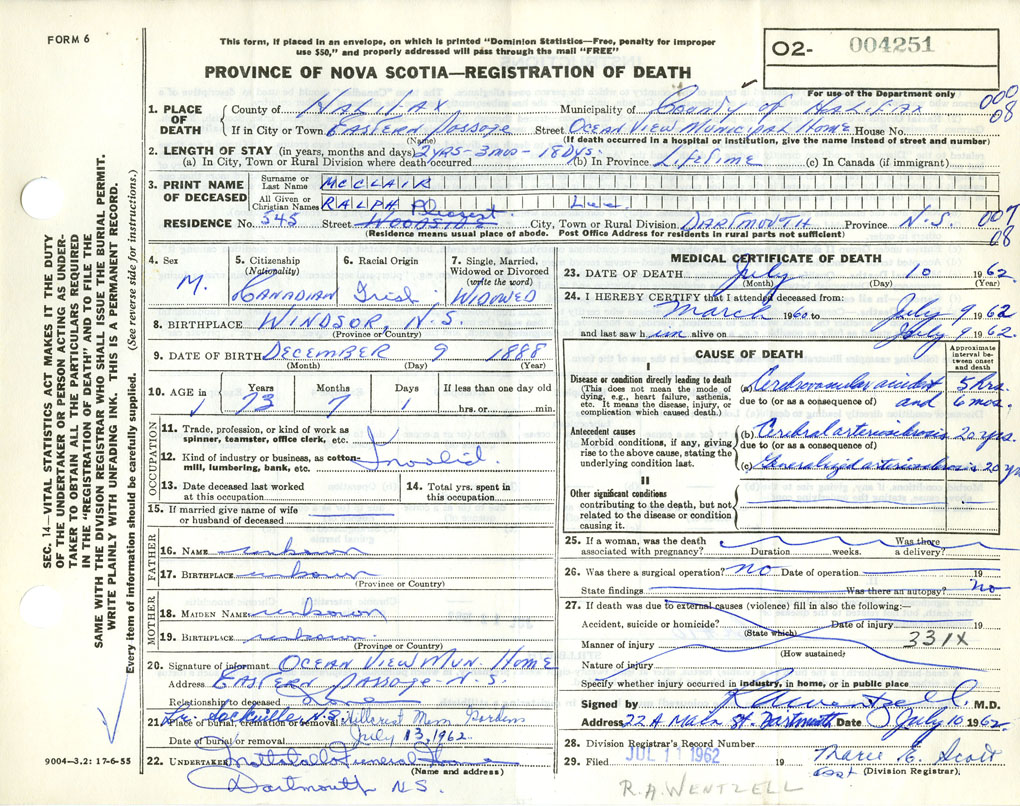 FORM 6
This form, if placed in an envelope, on which is printed "Dominion Statistics—Free, penalty for improper
use $50," and properly addressed will pass through the mail "FREE"
PROVINCE OF NOVA SCOTIA—REGISTRATION OF DEATH
O2- 004251
For use of the Department only
000
08
1. PLACE OF DEATH County of HALIFAX Municipality of County of HALIFAX
If in City or Town EASTERN PASSAGE Street OCEAN VIEW MUNICIPAL HOME House No.
(Name) (If death occurred in a hospital or institution, give the name instead of street and number)
2. LENGTH OF STAY (in years, months and days) 2 YRS-3 MOS-18 DYS.
(a) In City, Town or Rural Division where death occurred (b) In Province LIFETIME (c) In Canada (if immigrant)
3. PRINT NAME OF DECEASED Surname or Last Name MCCLAIR
All Given or Christian Names RALPH Lee
RESIDENCE No. 545 Street WOODSIDE Pleasant City, Town or Rural Division DARTMOUTH Province N.S. 007
08
(Residence means usual place of abode. Post Office Address for residents in rural parts not sufficient)
4. Sex M.
5. Citizenship (Nationality) CANADIAN
6. Racial Origin Irish
7. Single, Married, Widowed or Divorced (write the word) WIDOWED
8. BIRTHPLACE WINDSOR, N.S.
(Province or Country)
9. DATE OF BIRTH DECEMBER 9 1888
(Month) (Day) (Year)
10. AGE in Years 73 Months 7 Days 1 If less than one day old hrs. or min.
OCCUPATION
11. Trade, profession, or kind of work as spinner, teamster, office clerk, etc.
12. Kind of industry or business, as cotton-mill, lumbering, bank, etc. Invalid.
13. Date deceased last worked at this occupation
14. Total yrs. spent in this occupation
15. If married give name of wife or husband of deceased
FATHER
16. NAME unknown
17. BIRTHPLACE unknown
(Province or Country)
MOTHER
18. MAIDEN NAME unknown
19. BIRTHPLACE unknown
(Province or Country)
20. Signature of informant OCEAN VIEW MUN. HOME
Address EASTERN PASSAGE-N.S.
Relationship to deceased None
21. Place of burial, cremation or removal Sackville, N.S. Hillcrest Mem Gardens
Date of burial or removal July 13, 1962
22. UNDERTAKER Mattatall Funeral Home
(Name and address)
Dartmouth N.S.
MEDICAL CERTIFICATE OF DEATH
23. DATE OF DEATH July 10 1962
(Month) (Day) (Year)
24. I HEREBY CERTIFY that I attended deceased from:
March 1960 to July 9 1962
and last saw h im alive on July 9 1962.
CAUSE OF DEATH
Approximate interval between onset and death
I
Disease or condition directly leading to death
(This does not mean the mode of dying, e.g., heart failure, asthenia, etc. It means the disease, injury, or complication which caused death.)
(a) Cerebrovascular accident 5 hrs.
due to (or as a consequence of) and 6 mos.
Antecedent causes
Morbid conditions, if any, giving rise to the above cause, stating the underlying condition last.
(b) Cerebral arteriosclerosis 20 yrs.
due to (or as a consequence of)
(c) Generalized arteriosclerosis 20 yrs
II
Other significant conditions
contributing to the death, but not related to the disease or condition causing it.
25. If a woman, was the death associated with pregnancy? Duration weeks. Was there a delivery?
26. Was there a surgical operation? NO Date of operation 19
State findings Was there an autopsy? NO
27. If death was due to external causes (violence) fill in also the following:—
Accident, suicide or homicide? Date of injury 19
(State which)
Manner of injury 331X
(How sustained)
Nature of injury
Specify whether injury occurred in industry, in home, or in public place
Signed by R A Wentzell M.D.
Address 22 A Main St. Dartmouth Date July 10 1962
28. Division Registrar's Record Number
29. Filed JUL 11 1962 19 Marie E. Scott
Asst (Division Registrar)
R.A. WENTZELL
SEC. 14—VITAL STATISTICS ACT MAKES IT THE DUTY
OF THE UNDERTAKER OR PERSON ACTING AS UNDER-
TAKER TO OBTAIN ALL THE PARTICULARS REQUIRED
IN THE "REGISTRATION OF DEATH" AND TO FILE THE
SAME WITH THE DIVISION REGISTRAR WHO SHALL ISSUE THE BURIAL PERMIT.
WRITE PLAINLY WITH UNFADING INK. THIS IS A PERMANENT RECORD.
Every item of information should be carefully supplied. (See reverse side for instructions.)
9004—3,2: 17-6-55